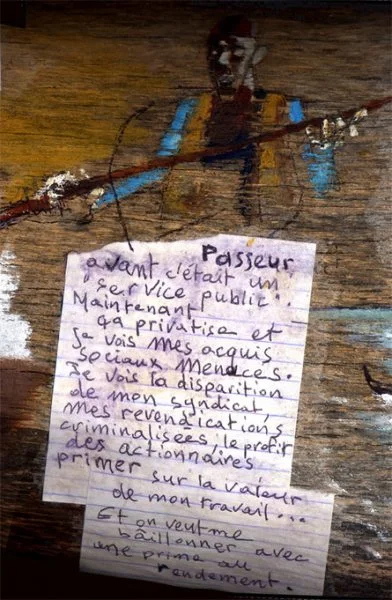 Passeur
avant c'était un
service public..
Maintenant
ça privatise et
je vois mes acquis
sociaux menacés.
Je vois la disparition
de mon syndicat,
mes revendications
criminalisées, le profit
des actionnaires
primer sur la valeur
de mon travail...
Et on veut me
bâillonner avec
une prime au
rendement.